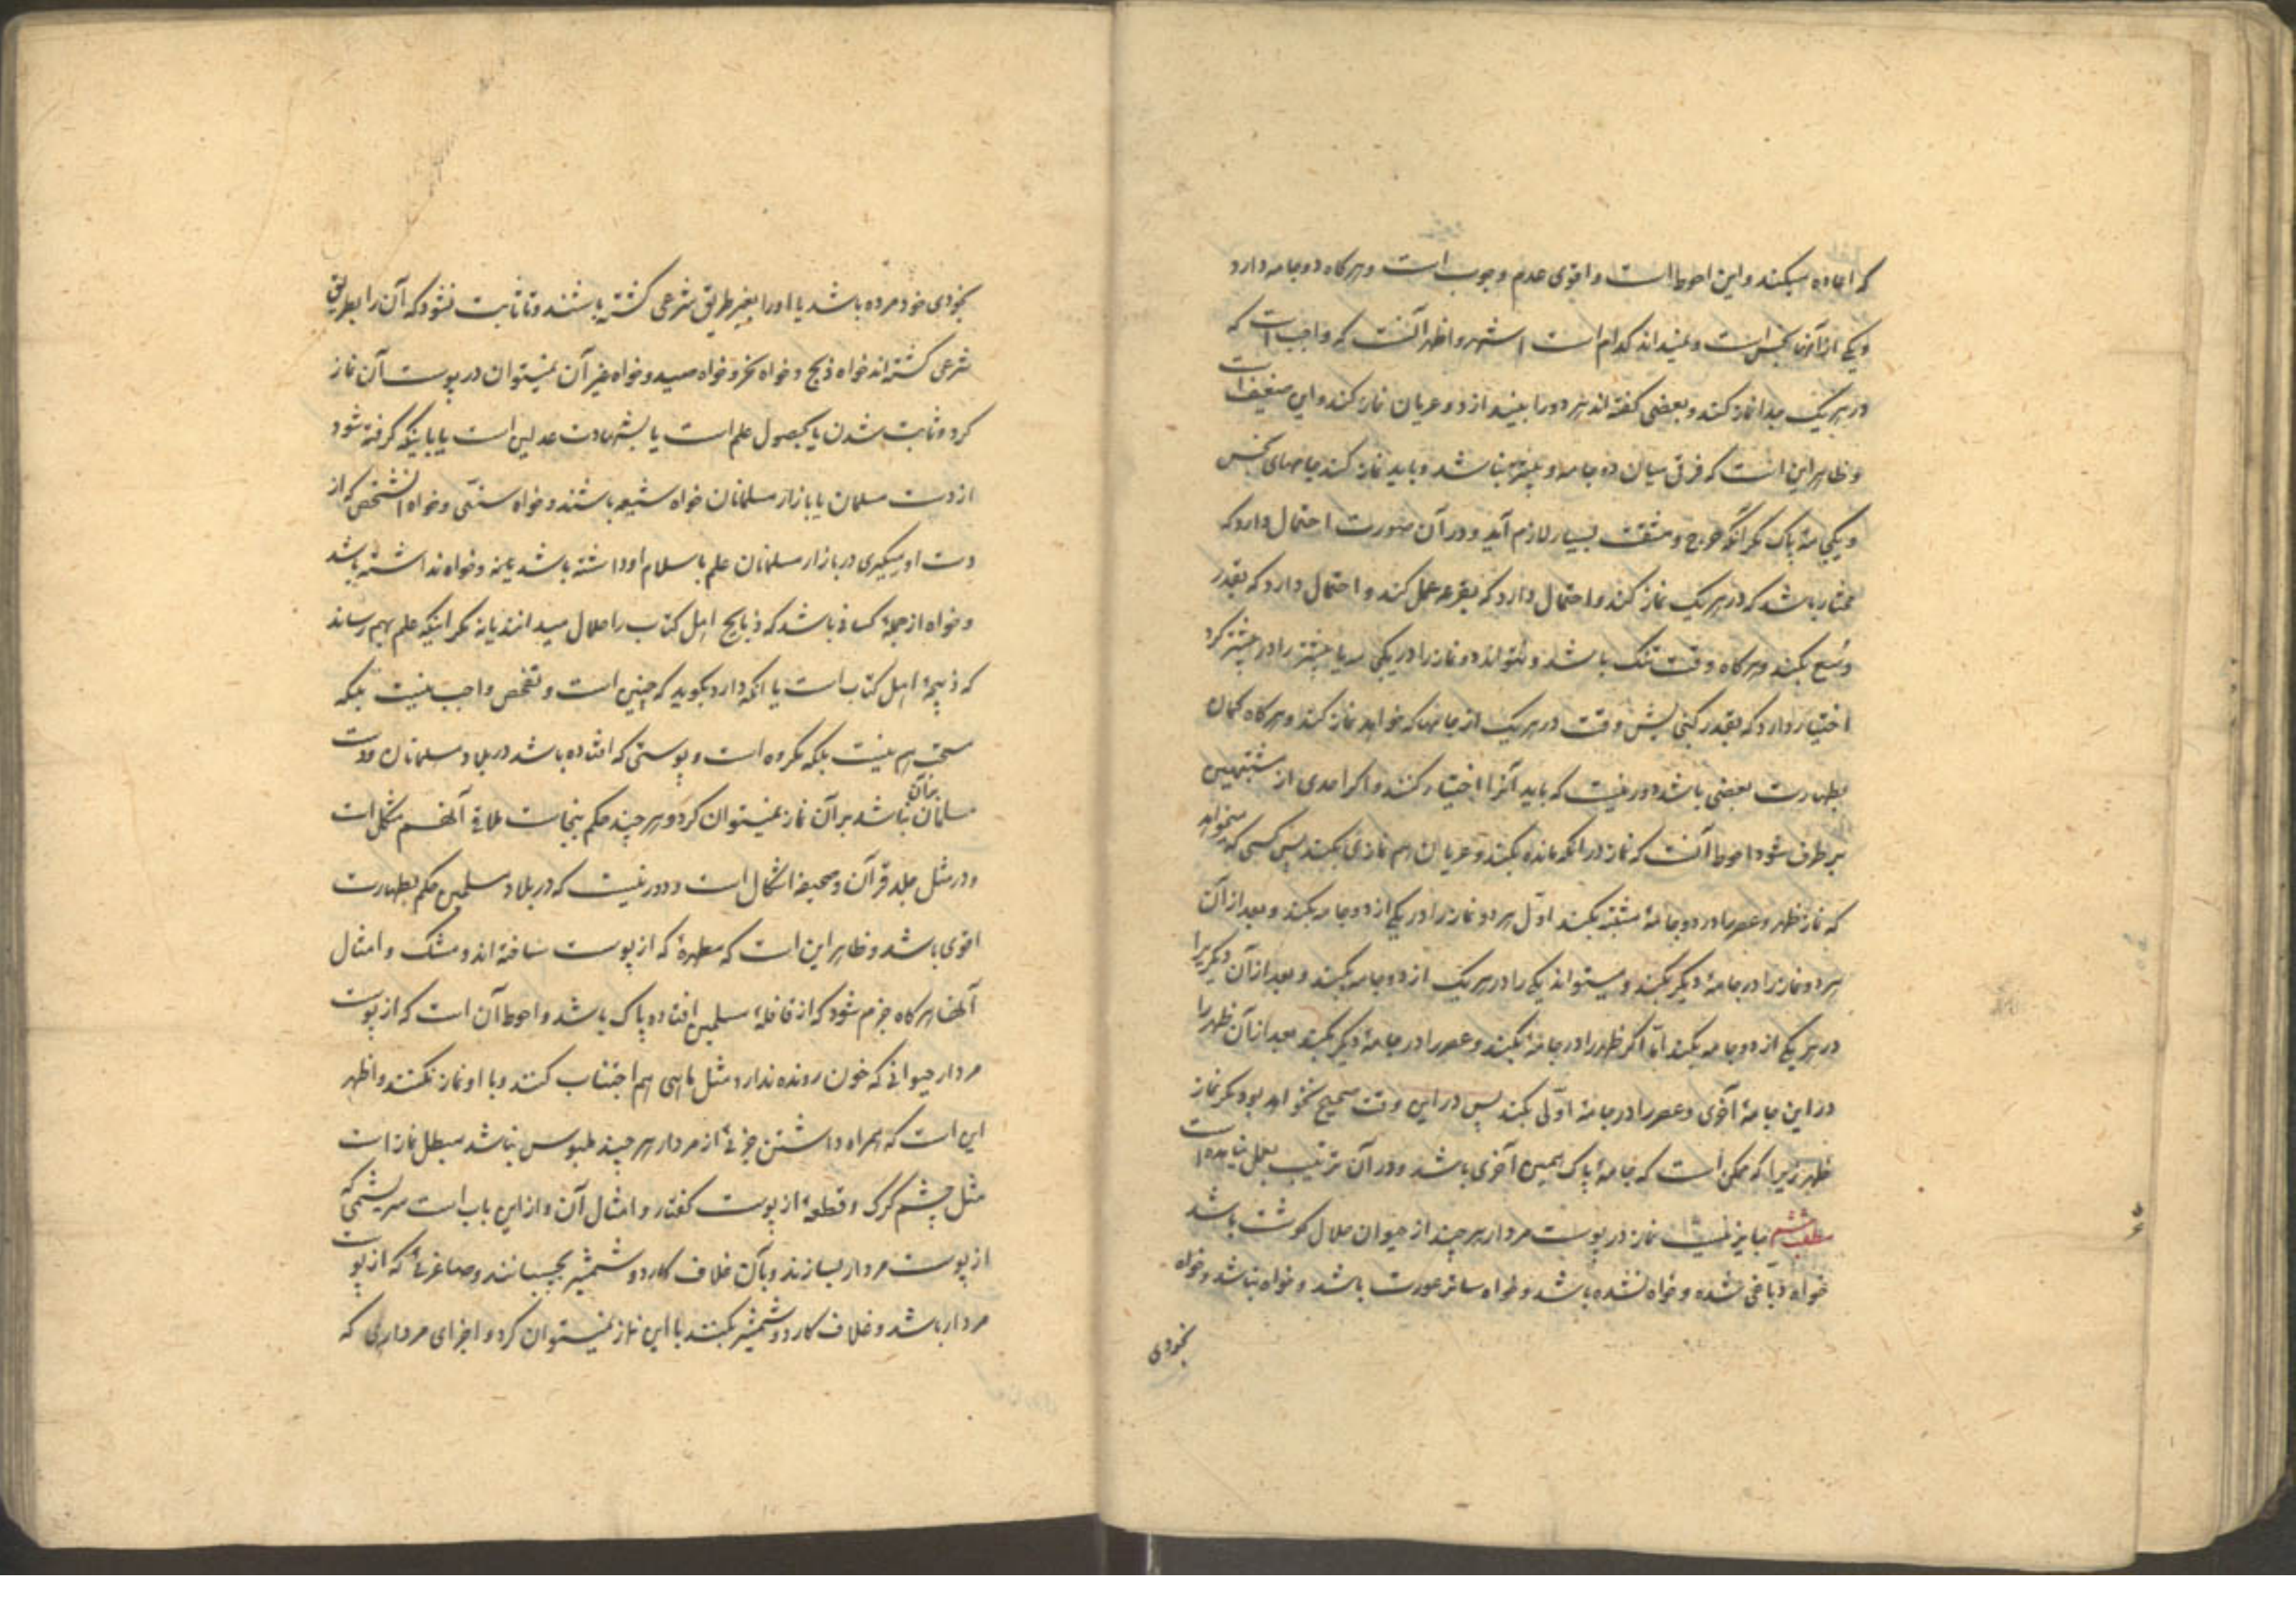 که اعاده میکند و این احوط است و اقوی عدم وجوب است و هرگاه دو جامه دارد
و یکی از آنها نجس است و نمیداند کدام است اشهر و اظهر آنست که واجب است که
در هر یک جدا نماز کند و بعضی گفته‌اند هر دو را بیندازد و عریان نماز کند و این ضعیف است
و ظاهر این است که فرق میان دو جامه و بیشتر نباشد و باید نماز کند جامهای نجس
و یکجامهٔ پاک مگر آنکه حرج و مشقت بسیار لازم آید و در آن صورت احتمال دارد که
مختار باشد که در هر یک نماز کند و احتمال دارد که بقرعه عمل کند و احتمال دارد که بقدر
وسع بکند و هرگاه وقت تنگ باشد و نتواند دو نماز را در یکی یا بیشتر را در بیشتر کرد
اختیار دارد که بقدر گنجایش وقت در هر یک از جامها که خواهد نماز کند و هرگاه گمان
بطهارت بعضی باشد دور نیست که باید آنرا اختیار کند و اگر احدی از مشتبهین
برطرف شود احوط آنست که نماز در آنکه مانده بکند و عریان هم نمازی بکند پس کسی که میخواهد
که نماز ظهر و عصر را در دو جامهٔ مشتبه بکند اوّل هر دو نماز را در یکی از دو جامه بکند و بعد از آن
هر دو نماز را در جامهٔ دیگر بکند و میتواند یکی را در هر یک از دو جامه بکند و بعد از آن دیگریرا
در هر یکی از دو جامه بکند امّا اگر ظهر را در جامهٔ بکند و عصر را در جامهٔ دیگر بکند بعد از آن ظهر را
در این جامهٔ آخری و عصر را در جامهٔ اوّلی بکند پس در این وقت صحیح نخواهد بود مگر نماز
ظهر زیرا که ممکن است که جامهٔ پاک همین آخری باشد و در آن ترتیب بعمل نیامده است
مطلب ششم جایز نیست نماز در پوست مردار هر چند از حیوان حلال گوشت باشد
خواه دباغی شده و خواه نشده باشد و خواه ساتر عورت باشد و خواه نباشد و خواه
بخودی
بخودی خود مرده باشد یا او را بغیر طریق شرعی کشته باشند و تا ثابت نشود که آن را بطریق
شرعی کشته‌اند خواه ذبح و خواه نحر و خواه صید و خواه غیر آن نمیتوان در پوست آن نماز
کرد و ثابت شدن یا بحصول علم است یا بشهادت عدلین است یا باینکه گرفته شود
از دست مسلمان یا بازار مسلمانان خواه شیعه باشند و خواه سنّی و خواه آنشخص که از
دست او میگیری در بازار مسلمانان علم باسلام او داشته باشد یا نه و خواه نداشته باشد
و خواه از جملهٔ کسانی باشد که ذبایح اهل کتاب را حلال میدانند یا نه مگر اینکه علم بهم رساند
که ذبیحهٔ اهل کتاب است یا آنکه دارد بگوید که چنین است و تفحص واجب نیست بلکه
سنّت هم نیست بلکه مکروه است و پوستی که افتاده باشد در بلاد مسلمانان و دست
مسلمان بر آن نباشد بر آن نماز نمیتوان کرد و هر چند حکم بنجاست ملاقی آنهم مشکل است
و در مثل جلد قرآن و صحیفه اشکال است و دور نیست که در بلاد مسلمین حکم بطهارت
اقوی باشد و ظاهر این است که مطهرهٔ که از پوست ساخته‌اند و مشک و امثال
آنها هرگاه جزم شود که از قافلهٔ مسلمین افتاده پاک باشد و احوط آن است که از پوست
مردار حیوانی که خون رونده ندارد مثل ماهی هم اجتناب کنند و با او نماز نکنند و اظهر
این است که همراه داشتن جزئی از مردار هر چند ملبوس نباشد مبطل نماز است
مثل چشم گرگ و قطعهٔ از پوست کفتار و امثال آن و از این باب است سریشمی که
از پوست مردار بسازند و بآن غلاف کارد و شمشیر بچسبانند و صاغرئی که از پوست
مردار باشد و غلاف کارد و شمشیر بکنند با این نماز نمیتوان کرد و اجزای مرداری که